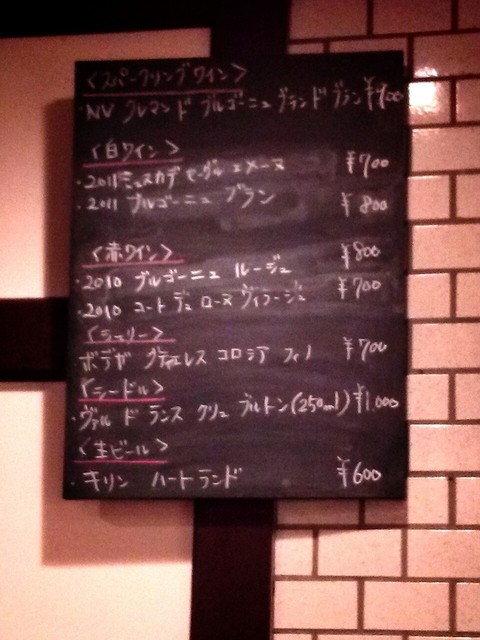 <スパークリングワイン>
・NV クレマン ド ブルゴーニュ ブラン ド ブラン ¥900
<白ワイン>
・2011 ミュスカデ セーヴル エ メーヌ ¥700
・2011 ブルゴーニュ ブラン ¥800
<赤ワイン>
・2010 ブルゴーニュ ルージュ ¥800
・2010 コート デュ ローヌ ヴィラージュ ¥700
<シェリー>
ボデガ グティエレス コロシア フィノ ¥700
<シードル>
・ヴァル ド ランス クリュ ブルトン(250ml) ¥1,000
<生ビール>
・キリン ハートランド ¥600